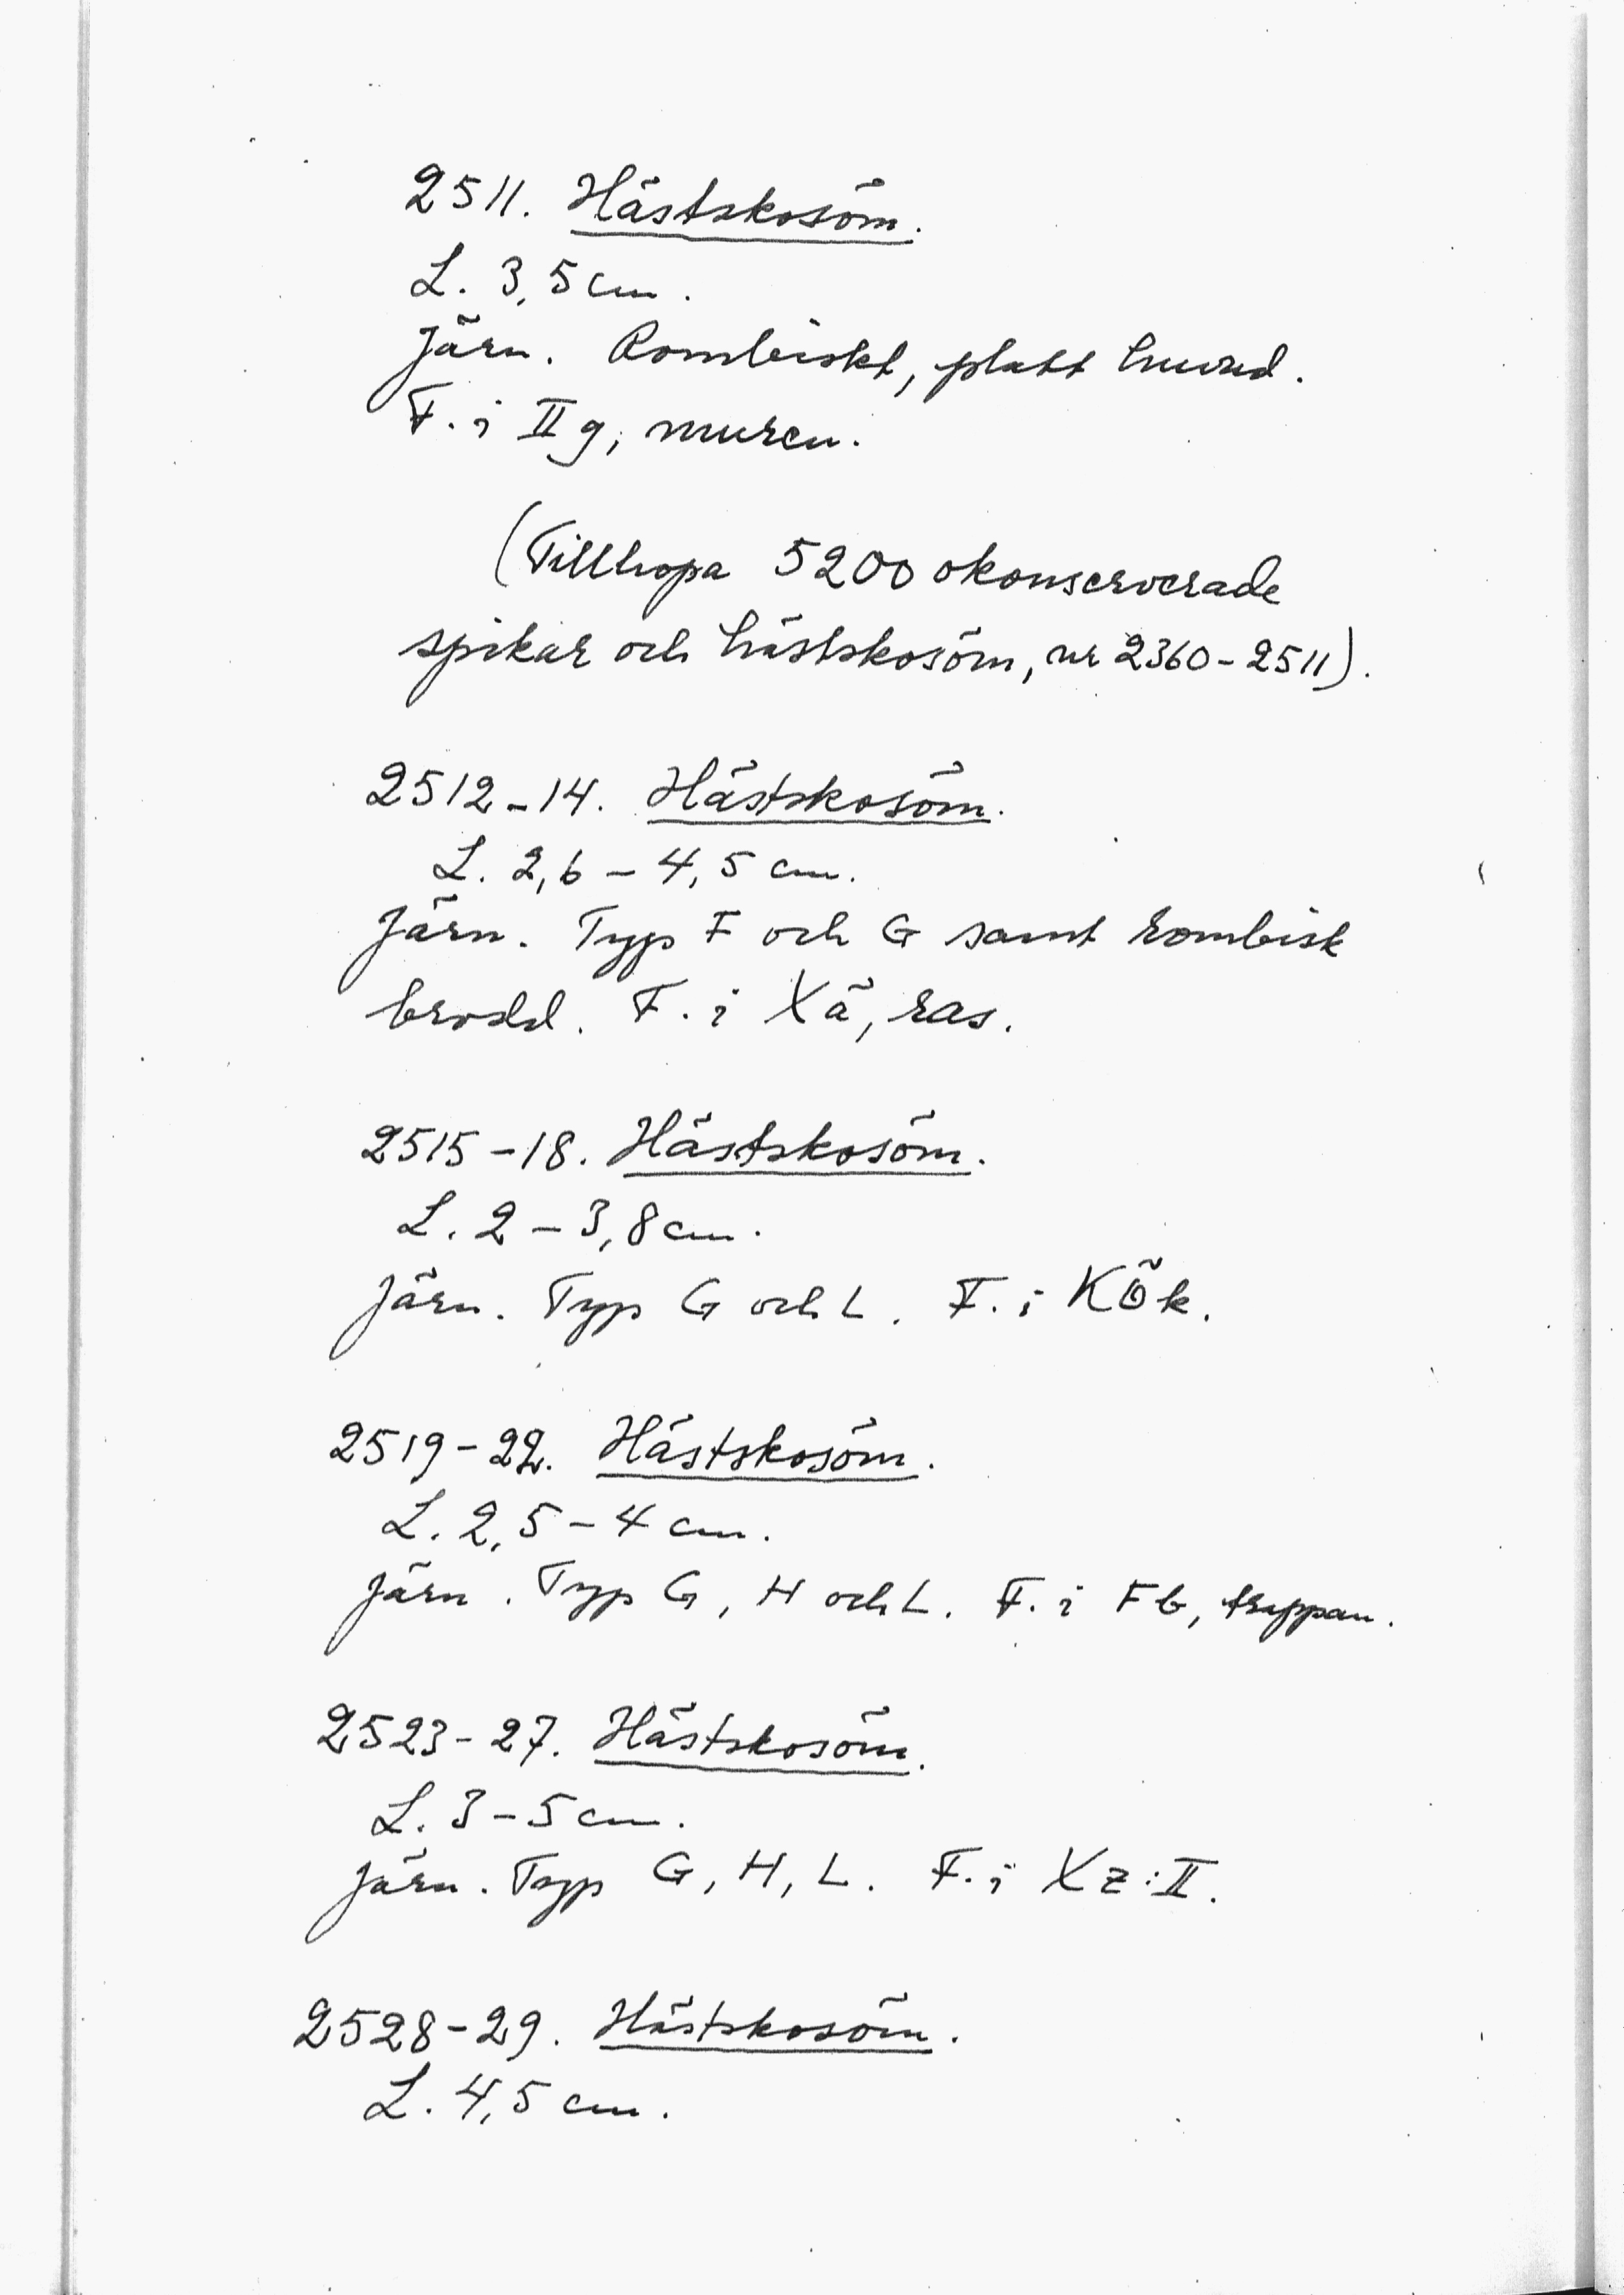 2511. Hästskosöm.
L. 3,5 cm.
Järn. Rombiskt, platt huvud.
F. i II g, muren.
(Tillhopa 5200 okonserverade
spikar och hästskosöm, nr 2360-2511).
2512-14. Hästskosöm.
L. 2,6 - 4,5 cm.
Järn. Typ F och G samt rombisk
brodd. F. i Xä, ras.
2515-18. Hästskosöm.
L. 2 - 3,8 cm.
Järn. Typ G och L. F. i KÖk.
2519-22. Hästskosöm.
L. 2,5 - 4 cm.
Järn. Typ G, H och L. F. i Fb, trappan.
2523-27. Hästskosöm.
L. 3-5 cm.
Järn. Typ G, H, L. F. i Xz:II.
2528-29. Hästskosöm.
L. 4,5 cm.